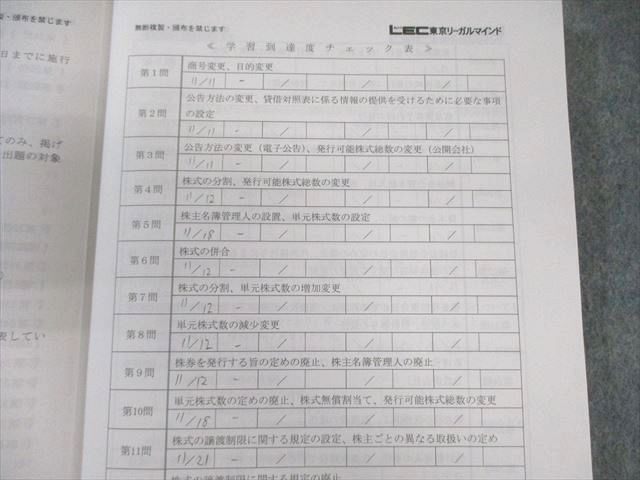 製・頒布を禁じます
日までに施行
てのみ、掲げ
出題の対象
表してい
無断複製・頒布を禁じます
LEC東京リーガルマインド
≪ 学習到達度チェック表 ≫
第1問
商号変更、目的変更
11/11 - / / /
第2問
公告方法の変更、貸借対照表に係る情報の提供を受けるために必要な事項
の設定
11/11 - / / /
第3問
公告方法の変更（電子公告）、発行可能株式総数の変更（公開会社）
11/11 - / / /
第4問
株式の分割、発行可能株式総数の変更
11/12 - / / /
第5問
株主名簿管理人の設置、単元株式数の設定
11/18 - / / /
第6問
株式の併合
11/12 - / / /
第7問
株式の分割、単元株式数の増加変更
11/12 - / / /
第8問
単元株式数の減少変更
11/12 - / / /
第9問
株券を発行する旨の定めの廃止、株主名簿管理人の廃止
11/12 - / / /
第10問
単元株式数の定めの廃止、株式無償割当て、発行可能株式総数の変更
11/18 - / / /
第11問
株式の譲渡制限に関する規定の設定、株主ごとの異なる取扱いの定め
11/21 - / / /
株式の譲渡制限に関する規定の廃止